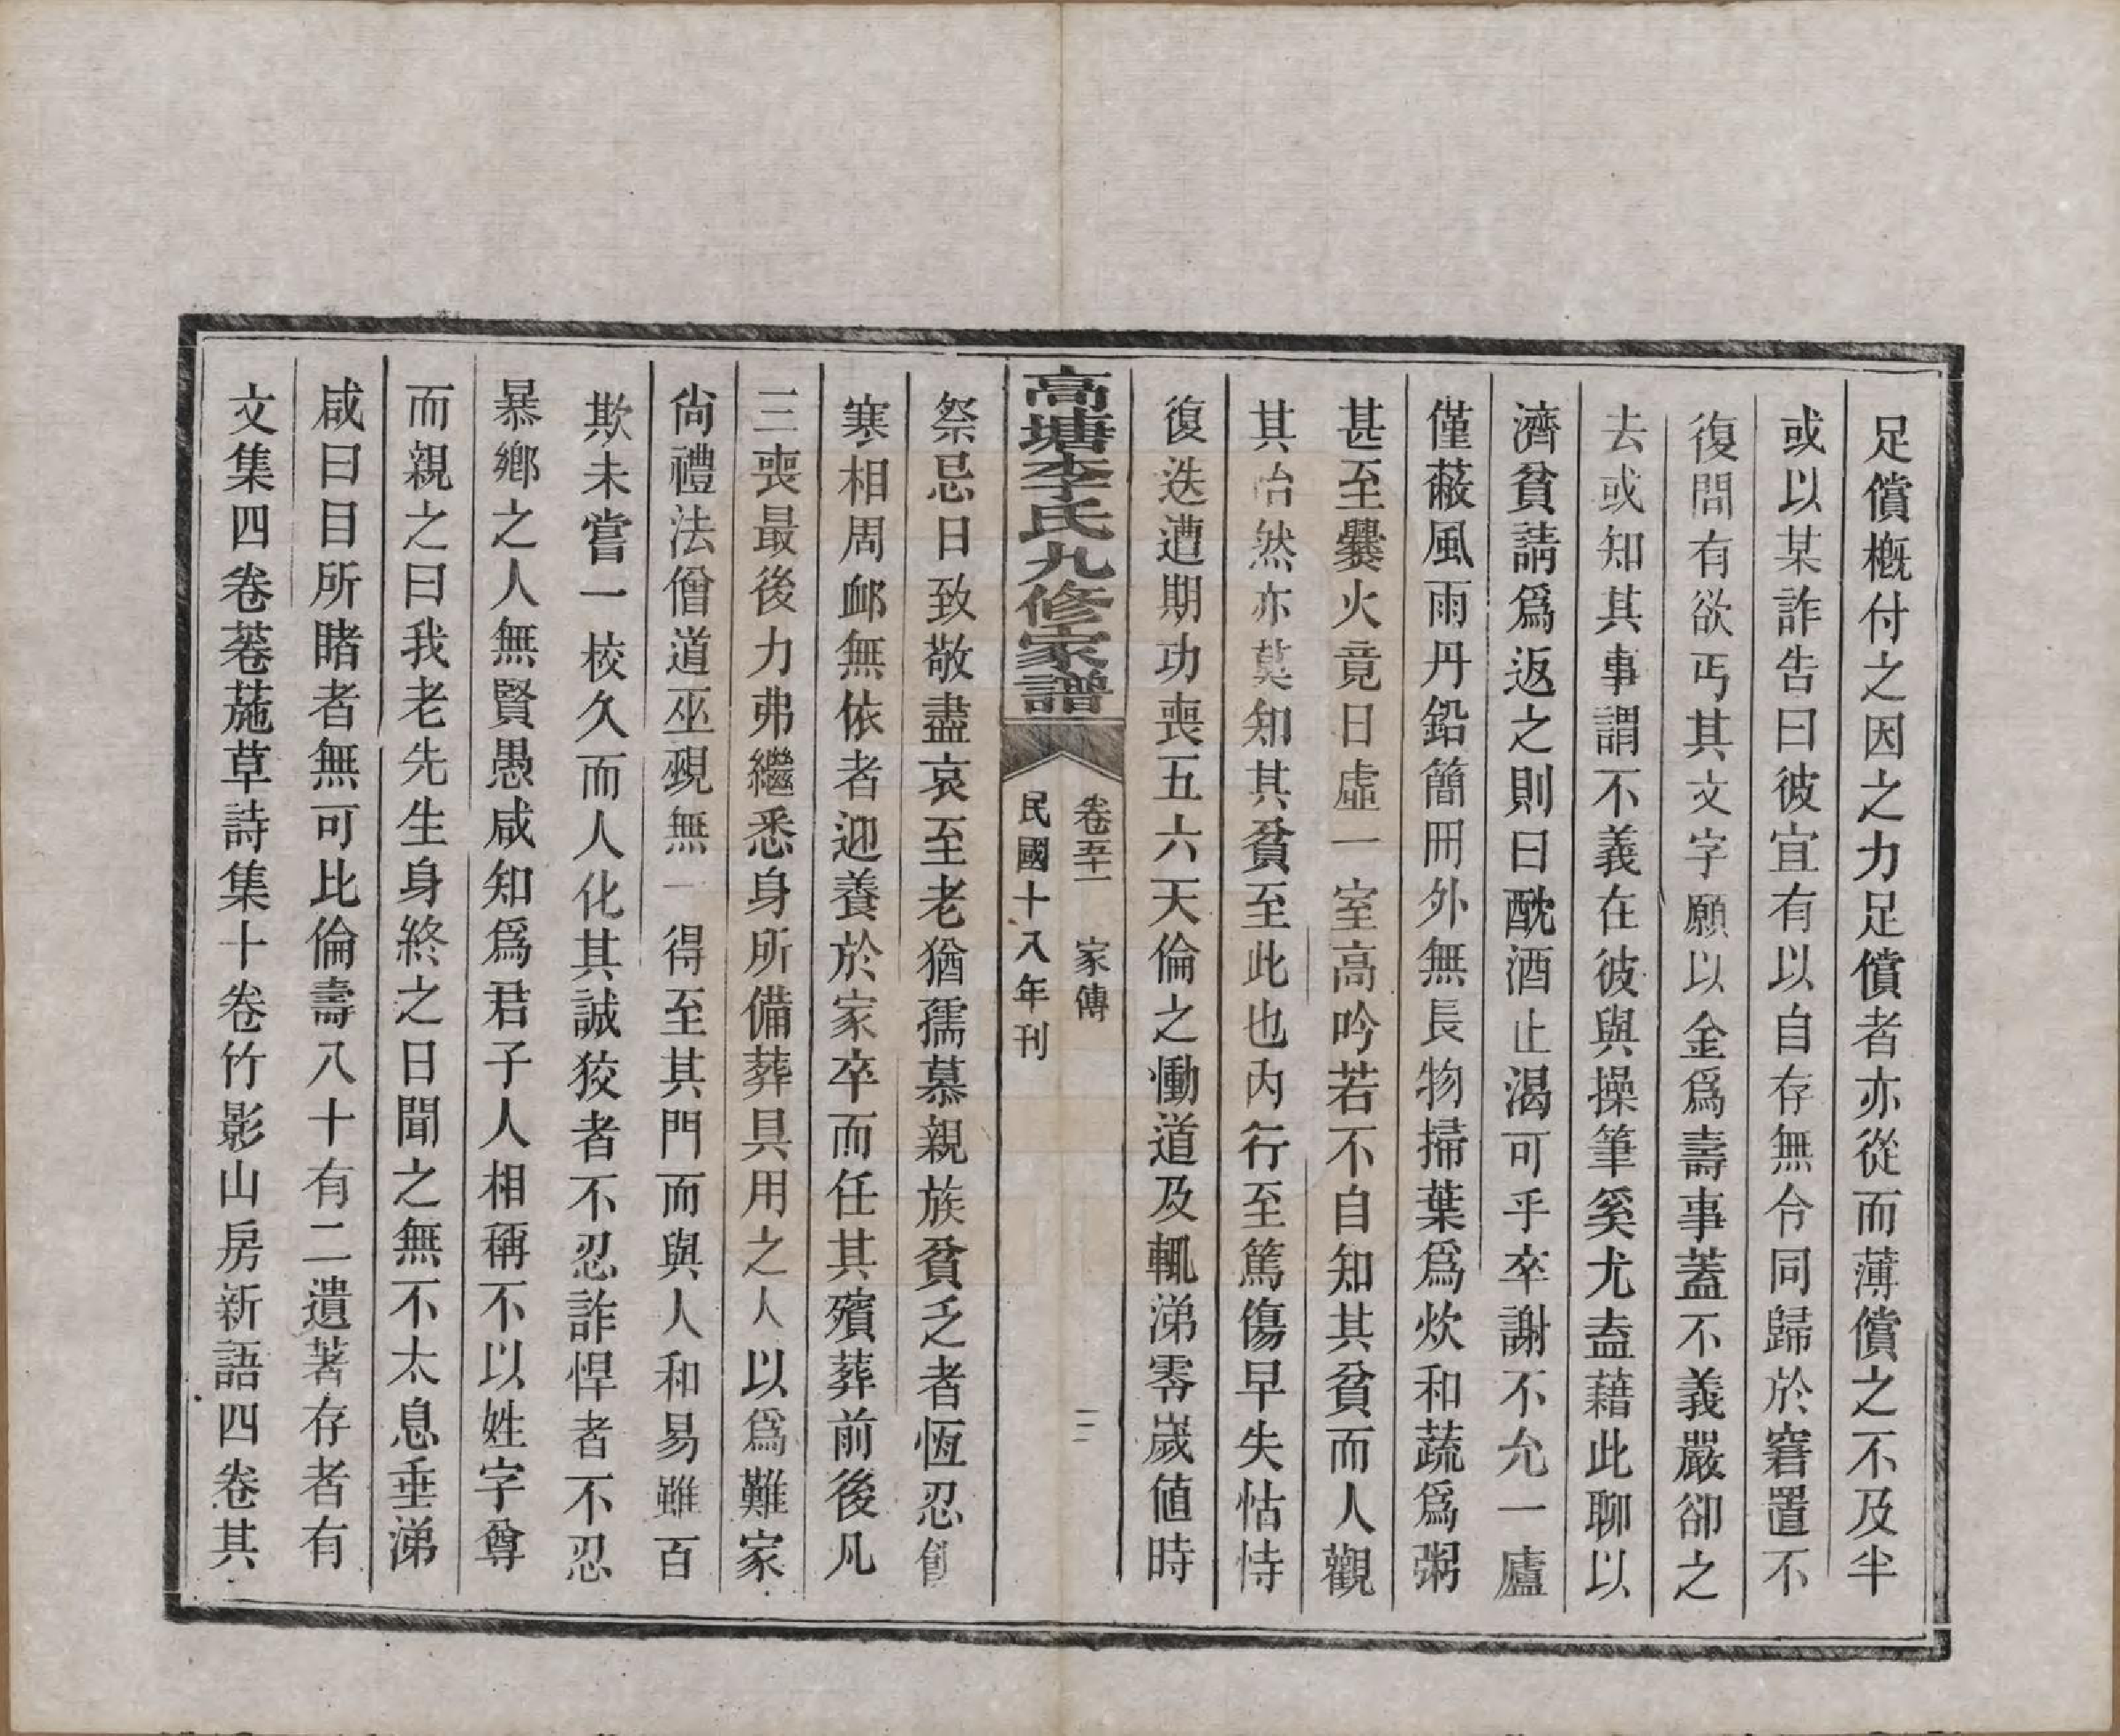 足償槪付之因之力足償者亦從而薄償之不及半
或以某詐告曰彼宜有以自存無令同歸於窘置不
復問有欲丐其文字願以金爲壽事蓋不義嚴卻之
去或知其事謂不義在彼與操筆奚尤盍藉此聊以
濟貧請爲返之則曰酖酒止渴可乎卒謝不允一廬
僅蔽風雨丹鉛簡冊外無長物掃葉爲炊和蔬爲粥
甚至爨火竟日虛一室高吟若不自知其貧而人觀
其怡然亦莫知其貧至此也內行至篤傷早失怙恃
復迭遭期功喪五六天倫之慟道及輒涕零歲値時
高塘李氏九修家譜
卷五十一 家傳
二
民國十八年刊
祭忌日致敬盡哀至老猶孺慕親族貧乏者恆忍飢
寒相周卹無依者迎養於家卒而任其殯葬前後凡
三喪最後力弗繼悉身所備葬具用之人以爲難家
尙禮法僧道巫覡無一得至其門而與人和易雖百
欺未嘗一校久而人化其誠狡者不忍詐悍者不忍
暴鄕之人無賢愚咸知爲君子人相稱不以姓字尊
而親之曰我老先生身終之日聞之無不太息垂涕
咸曰目所睹者無可比倫壽八十有二遺著存者有
文集四卷菤葹草詩集十卷竹影山房新語四卷其